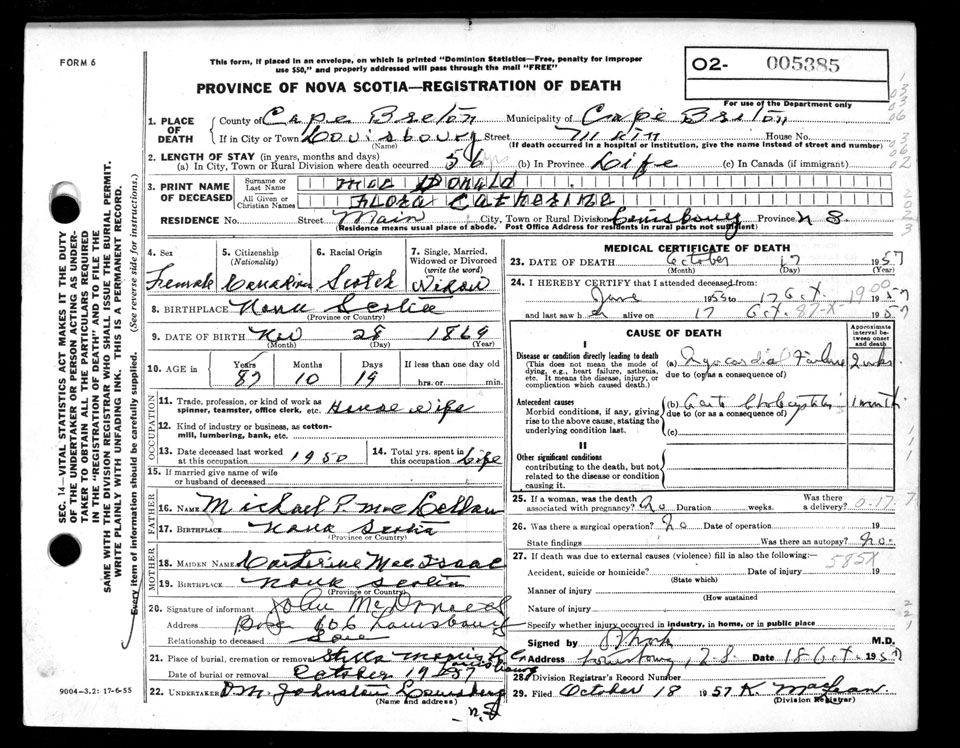 FORM 6
This form, if placed in an envelope, on which is printed "Dominion Statistics—Free, penalty for improper
use $50," and properly addressed will pass through the mail "FREE"
O2- 005385
For use of the Department only
PROVINCE OF NOVA SCOTIA—REGISTRATION OF DEATH
1. PLACE OF DEATH
County of Cape Breton Municipality of Cape Breton
If in City or Town Louisbourg Street Main House No.
(Name) (If death occurred in a hospital or institution, give the name instead of street and number)
2. LENGTH OF STAY (in years, months and days)
(a) In City, Town or Rural Division where death occurred 56 yrs (b) In Province Life (c) In Canada (if immigrant)
3. PRINT NAME OF DECEASED
Surname or Last Name Mac Donald
All Given or Christian Names Flora Catherine
RESIDENCE No. Street Main City, Town or Rural Division Louisbourg Province N S.
(Residence means usual place of abode. Post Office Address for residents in rural parts not sufficient)
4. Sex Female
5. Citizenship (Nationality) Canadian
6. Racial Origin Scotch
7. Single, Married, Widowed or Divorced (write the word) Widow
8. BIRTHPLACE Nova Scotia
(Province or Country)
9. DATE OF BIRTH Nov 28 1869
(Month) (Day) (Year)
10. AGE in Years 87 Months 10 Days 19 If less than one day old
hrs. or min.
OCCUPATION
11. Trade, profession, or kind of work as spinner, teamster, office clerk, etc. House wife
12. Kind of industry or business, as cotton-mill, lumbering, bank, etc.
13. Date deceased last worked at this occupation 1950
14. Total yrs. spent in this occupation Life
15. If married give name of wife or husband of deceased
FATHER
16. NAME Michael P. McLellan
17. BIRTHPLACE Nova Scotia
(Province or Country)
MOTHER
18. MAIDEN NAME Catherine MacIsaac
19. BIRTHPLACE Nova Scotia
(Province or Country)
20. Signature of informant John McDonald
Address Box 606 Louisbourg
Relationship to deceased Son
21. Place of burial, cremation or removal Stella Maris
Date of burial or removal October 19 1957
22. UNDERTAKER Johnston Louisbourg
(Name and address)
N.S
MEDICAL CERTIFICATE OF DEATH
23. DATE OF DEATH October 17 1957
(Month) (Day) (Year)
24. I HEREBY CERTIFY that I attended deceased from:
June 1953 to 17 Oct. 1957
and last saw h alive on 17 Oct. 1957
CAUSE OF DEATH
Approximate interval between onset and death
I
Disease or condition directly leading to death
(This does not mean the mode of dying, e.g., heart failure, asthenia, etc. It means the disease, injury, or complication which caused death.)
(a) Myocardial Failure 2 wks.
due to (or as a consequence of)
Antecedent causes
Morbid conditions, if any, giving rise to the above cause, stating the underlying condition last.
(b) Acute Cholecystitis 1 month
due to (or as a consequence of)
(c)
II
Other significant conditions
contributing to the death, but not related to the disease or condition causing it.
25. If a woman, was the death associated with pregnancy? No Duration weeks. Was there a delivery? 0-17
26. Was there a surgical operation? No Date of operation 19
State findings Was there an autopsy? No.
27. If death was due to external causes (violence) fill in also the following:—
585X
Accident, suicide or homicide? Date of injury 19
(State which)
Manner of injury
(How sustained
Nature of injury
Specify whether injury occurred in industry, in home, or in public place
Signed by M.D.
Address Louisbourg, N.S. Date 18 Oct. 1957
28. Division Registrar's Record Number
29. Filed October 18 1957 K. MacLean
(Division Registrar)
SEC. 14—VITAL STATISTICS ACT MAKES IT THE DUTY
OF THE UNDERTAKER OR PERSON ACTING AS UNDER-
TAKER TO OBTAIN ALL THE PARTICULARS REQUIRED
IN THE "REGISTRATION OF DEATH" AND TO FILE THE
SAME WITH THE DIVISION REGISTRAR WHO SHALL ISSUE THE BURIAL PERMIT.
WRITE PLAINLY WITH UNFADING INK. THIS IS A PERMANENT RECORD.
Every item of information should be carefully supplied. (See reverse side for instructions.)
9004-3.2: 17-6-55